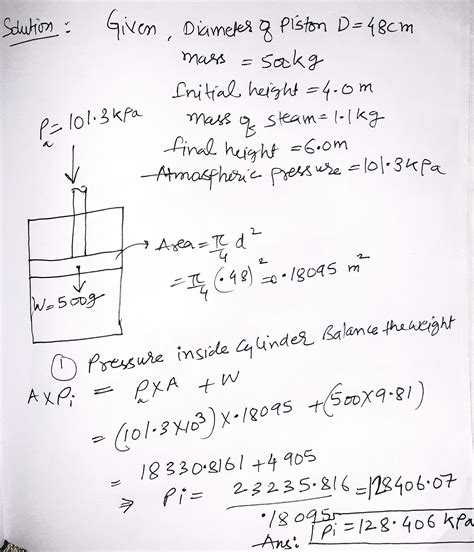 Solution : Given, Diameter of Piston D = 48cm
mass = 500kg
Initial height = 4.0 m
mass of steam = 1.1 kg
final height = 6.0m
Atmospheric pressure = 101.3 kPa
Pa = 101.3 kPa
→ Area = π/4 d²
= π/4 (.48)² = 0.18095 m²
W = 500g
① Pressure inside Cylinder Balance the weight
A x Pi = Pa x A + W
= (101.3 x 10³) x .18095 + (500 x 9.81)
= 18330.8161 + 4905
⇒ Pi = 23235.816 / .18095 = 128406.07
Ans: Pi = 128.406 kPa